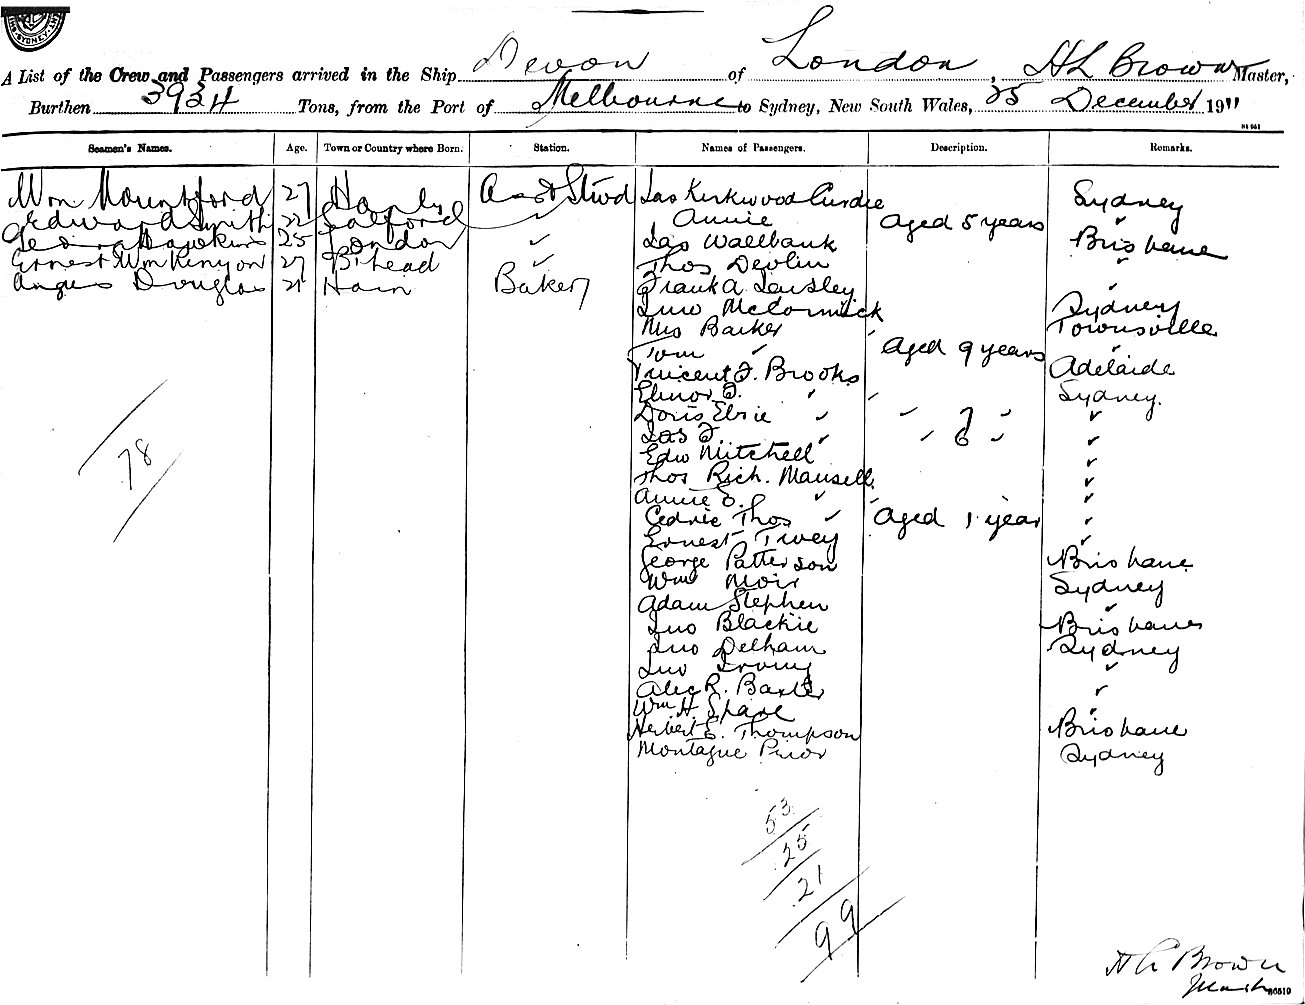 A List of the Crew and Passengers arrived in the Ship Devon of London, HL Brown Master,
Burthen 3934 Tons, from the Port of Melbourne to Sydney, New South Wales, 25 December 1911
Seamen's Names. Age. Town or Country where Born. Station. Names of Passengers. Description. Remarks.
Wm Mountford 27 Hanley Asst Stwd Jas Kirkwood Curdie Sydney
Edward Smith 22 Salford Annie Aged 5 years
George Hawkins 25 London Jas Wallbank Brisbane
Ernest Wm Kenyon 27 B'head Thos Devlin
Angus Douglas 21 Baker Frank A.
Jno McCormick Sydney
Mrs Barker Townsville
Tom Aged 9 years
Vincent J. Brooks Adelaide
Elinor J. Sydney.
Doris Elsie 7
Jas J. 6
Edw Mitchell
Thos Rich. Mansell
Annie E.
Cedric Thos Aged 1 year
Ernest Tivey
George Patterson Brisbane
Wm Moir Sydney
Adam Stephen
Jno Blackie Brisbane
Jno Delham Sydney
Jno Irving
Alec R. Baxter
Wm H
Herbert E. Thompson Brisbane
Montague Prior Sydney
78
53
25
21
99
Brown